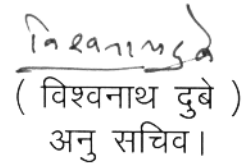 ( विश्वनाथ दुबे )
अनु सचिव।